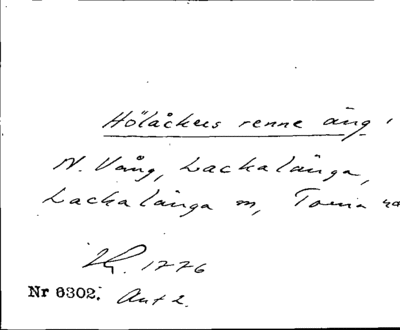 Hölåkers renne äng
N. Vång, Lackalänga,
Lackalänga sn, Torna
1776
Nr 6302. Akt 2.